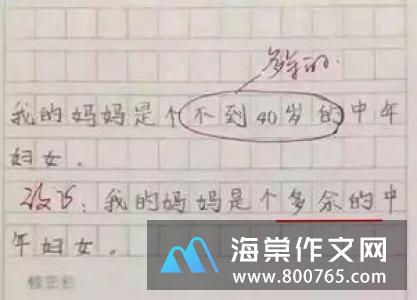 多余的.
我的妈妈是个不到40岁的中年
妇女.
改为：我的妈妈是个多余的中
年妇女.
修正栏
海棠作文网
www.800765.com